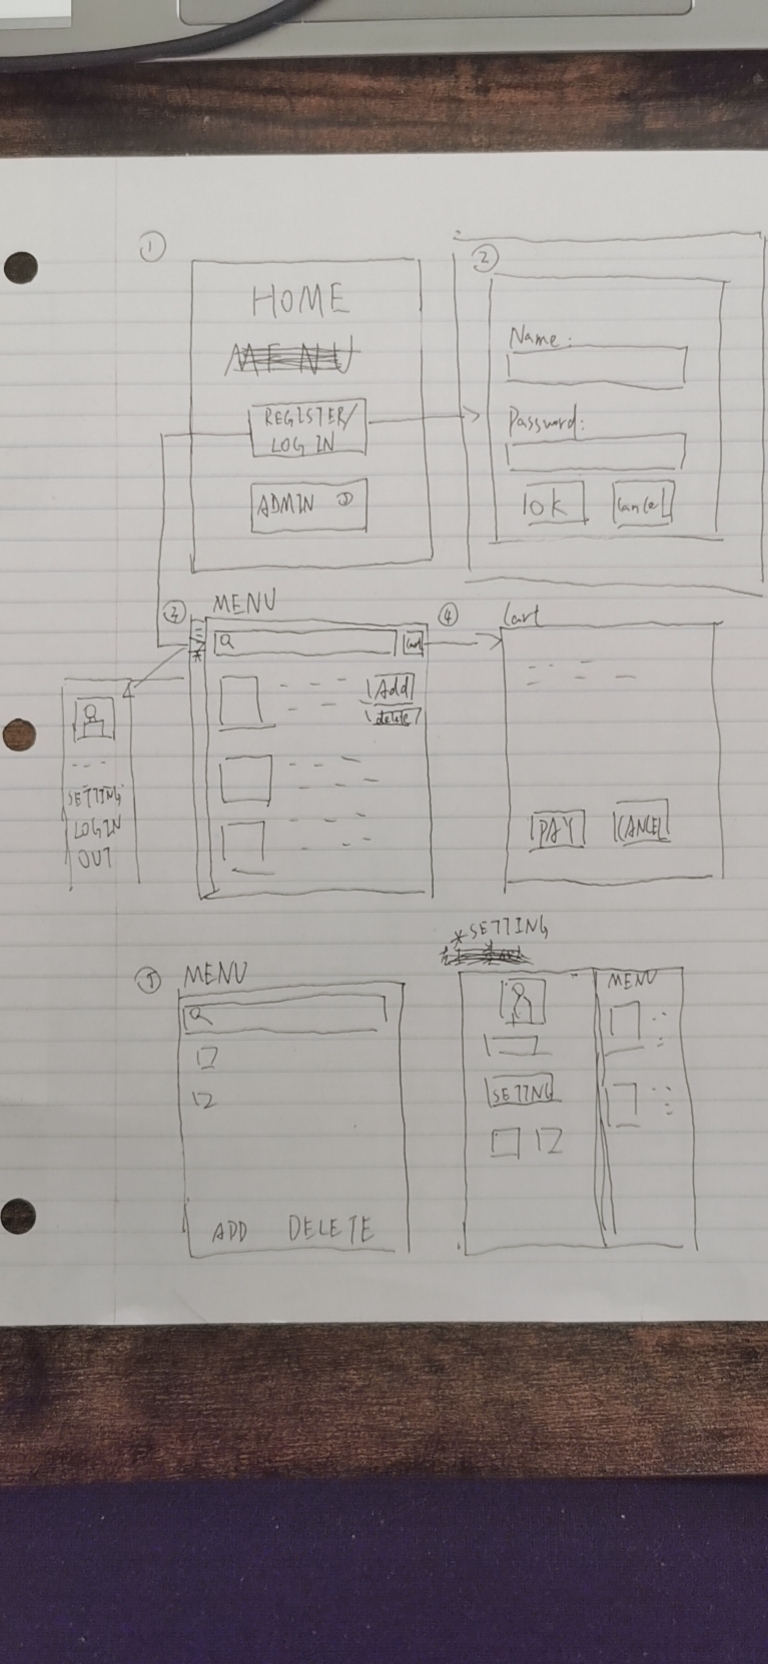 ①
HOME
MENU
REGISTER/
LOG IN
ADMIN
②
Name:
Password:
ok
Cancel
③
MENU
Cart
Add
delete
SETTING
LOGIN
OUT
④
Cart
PAY
CANCEL
⑤
MENU
ADD DELETE
*SETTING
SETTING
MENU